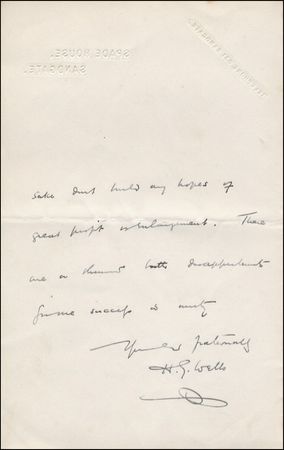 SPADE HOUSE,
SANDGATE.
sake don't build any hopes of
great profit . There
are a thousand disappointments
success is
fraternally
H. G. Wells